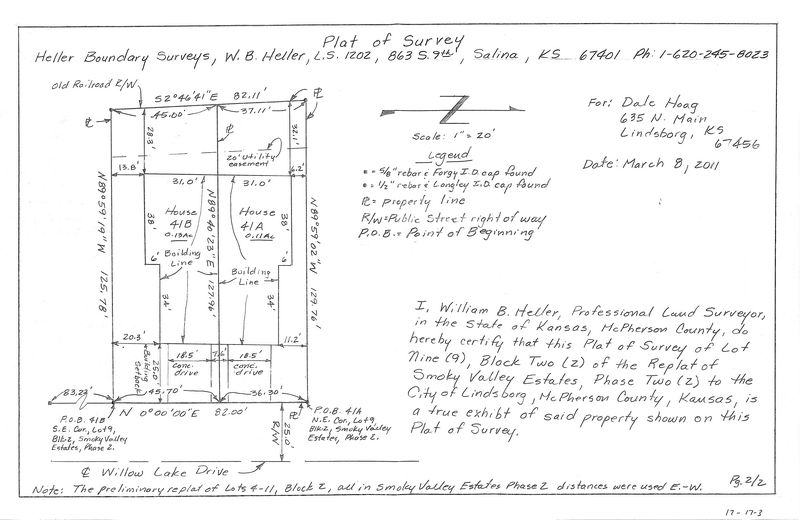 Plat of Survey
Heller Boundary Surveys, W. B. Heller, L.S. 1202, 863 S. 9th, Salina, KS 67401 Ph: 1-620-245-8023
Old Railroad R/W
S2°46'41"E 82.11'
45.00'
37.11'
28.3'
32.1'
20' Utility
easement
13.8'
6.2'
31.0'
31.0'
N 89°59'19" W 125.78'
N 89°40'23" E 127.96'
N 89°59'02" W 129.76'
38'
38'
House
41B
0.13Ac
House
41A
0.11Ac
Building
Line
Building
Line
6'
6'
34'
34'
20.3'
7.6'
11.2'
Building
Setback
25.0'
18.5'
conc.
drive
18.5'
conc.
drive
83.23'
45.70'
36.30'
N 0°00'00"E 82.00'
P.O.B. 41B
S.E. Cor., Lot 9,
Blk. 2, Smoky Valley
Estates, Phase 2.
P.O.B. 41A
N.E. Cor., Lot 9,
Blk. 2, Smoky Valley
Estates, Phase 2.
25.0'
R/W
℄ Willow Lake Drive
Note: The preliminary replat of Lots 4-11, Block 2, all in Smoky Valley Estates Phase 2 distances were used E.-W.
Z
Scale: 1" = 20'
Legend
= 5/8" rebar & Forgy I.D. cap found
= 1/2" rebar & Longley I.D. cap found
PL = property line
R/W = Public Street right of way
P.O.B. = Point of Beginning
For: Dale Hoag
635 N. Main
Lindsborg, KS
67456
Date: March 8, 2011
I, William B. Heller, Professional Land Surveyor,
in the State of Kansas, McPherson County, do
hereby certify that this Plat of Survey of Lot
Nine (9), Block Two (2) of the Replat of
Smoky Valley Estates, Phase Two (2) to the
City of Lindsborg, McPherson County, Kansas, is
a true exhibt of said property shown on this
Plat of Survey.
Pg. 2/2
17-17-3